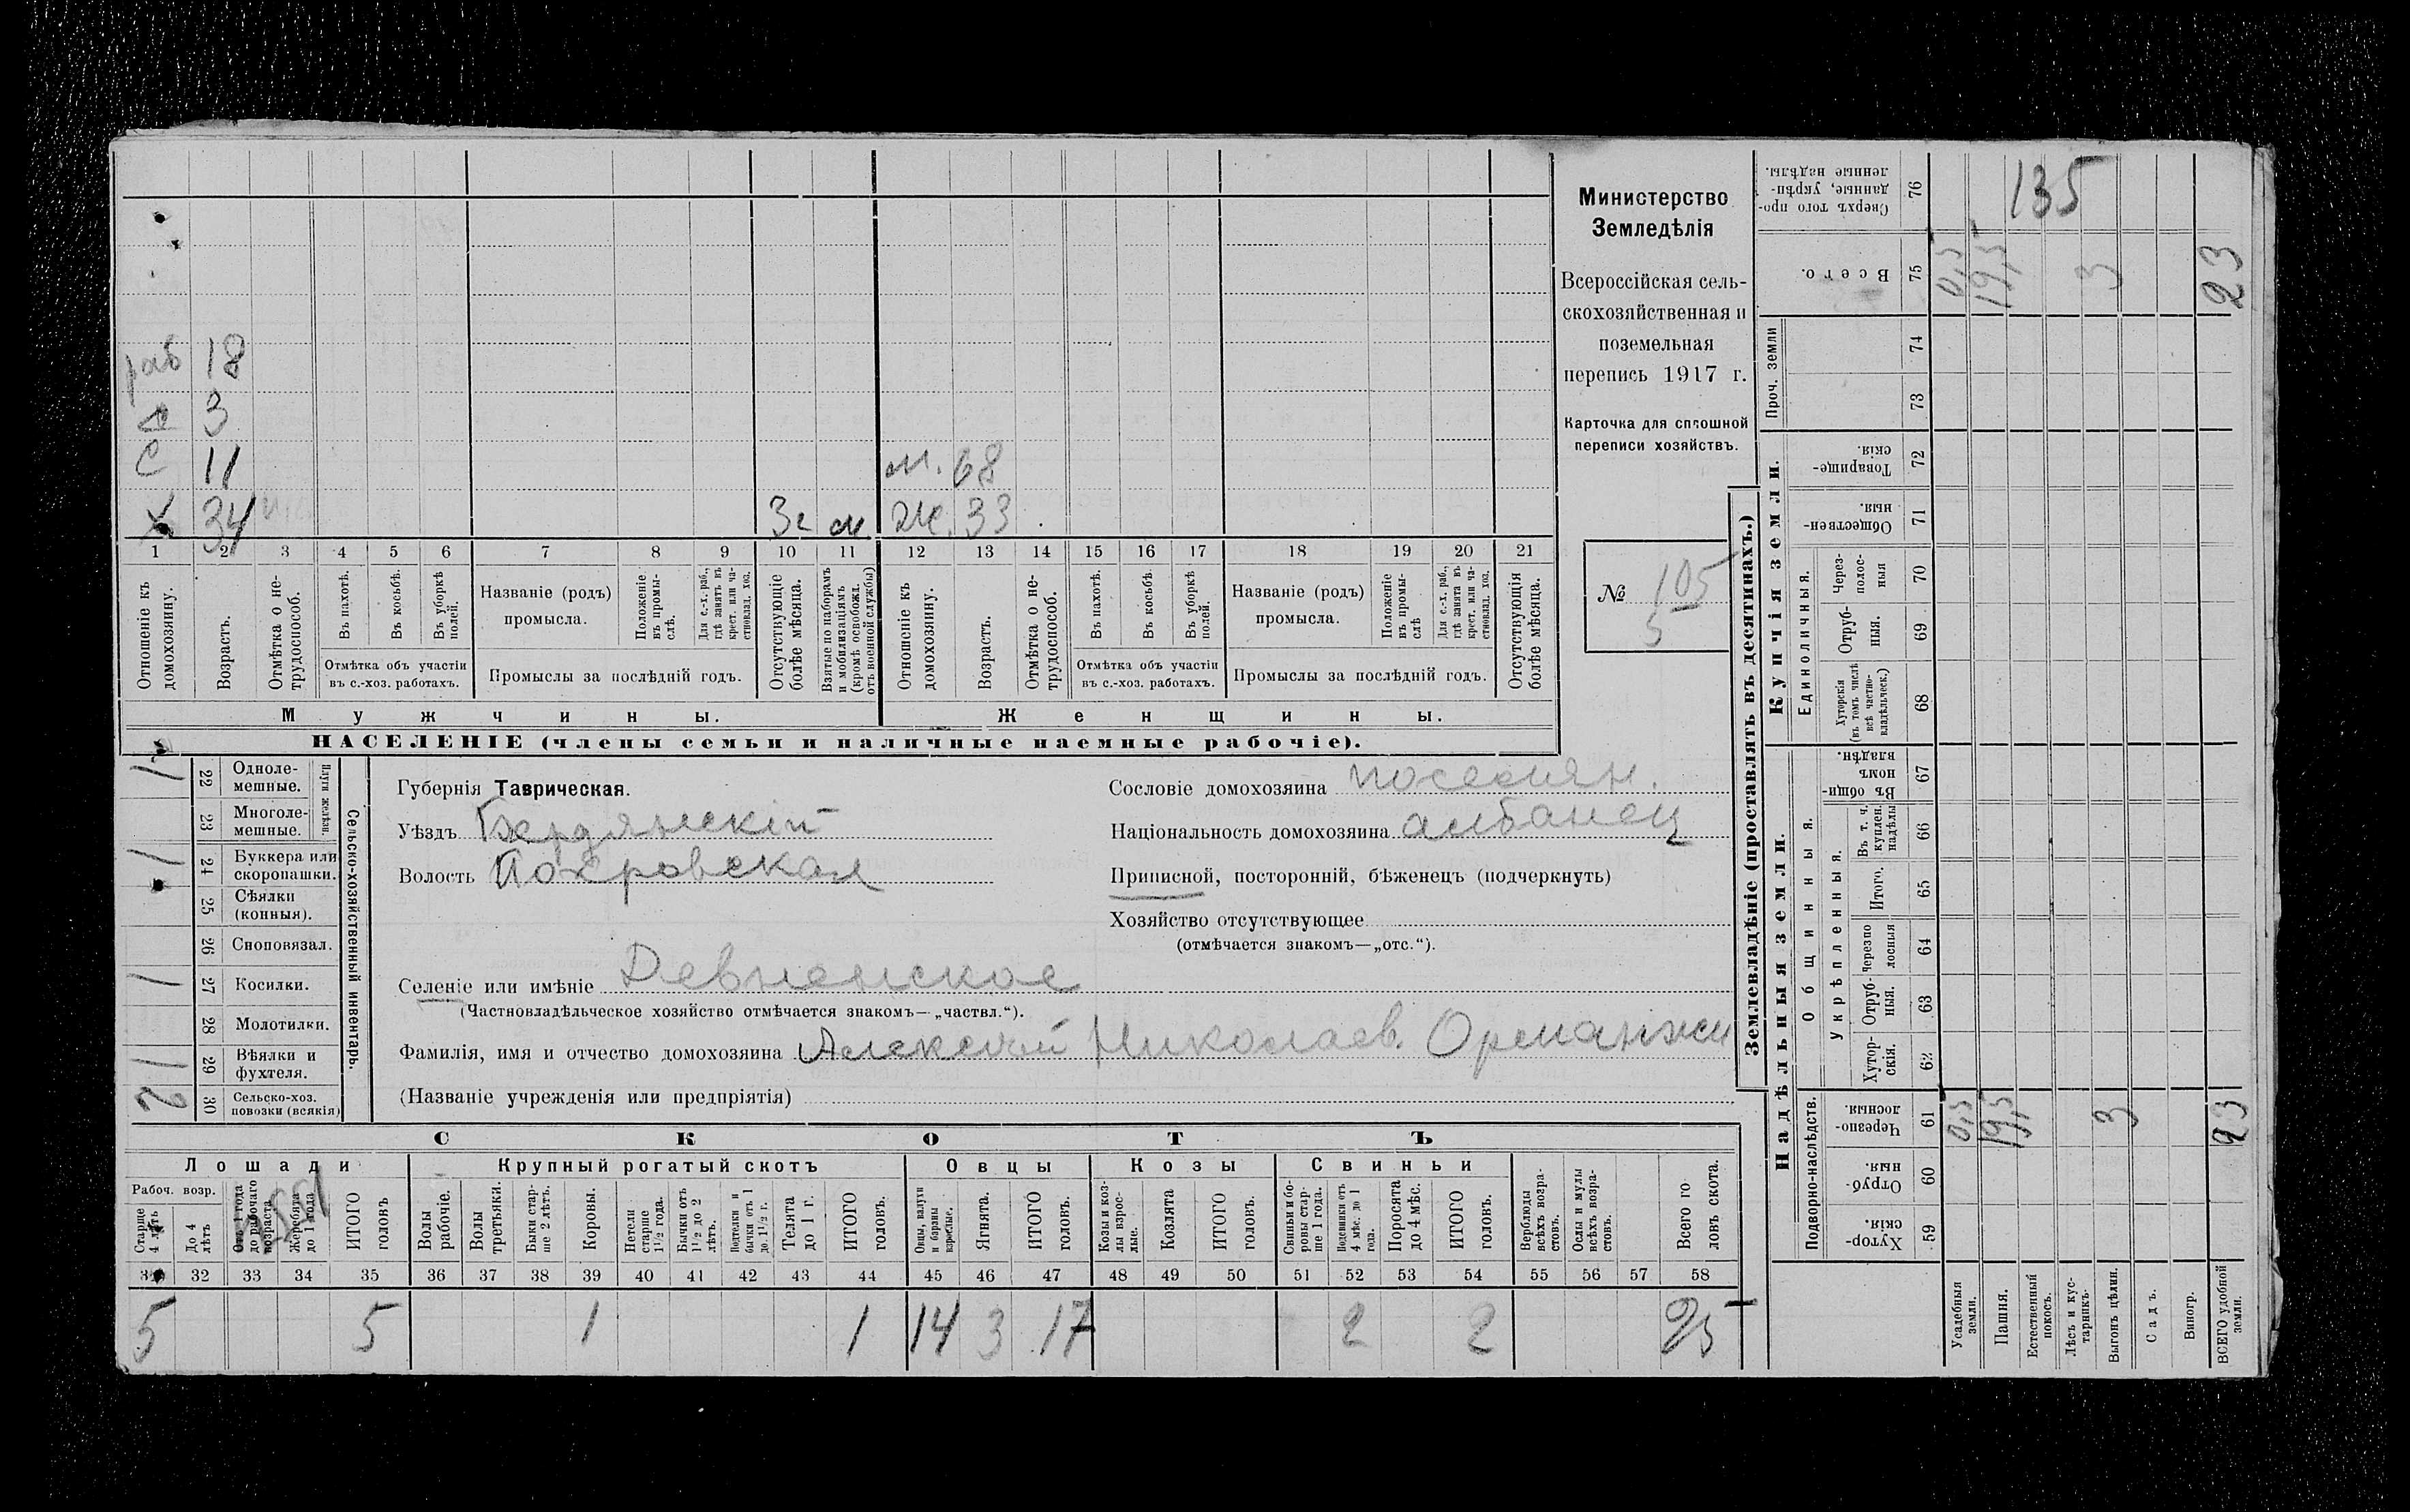 раб 18
3
С 11 м. 68
Х 34 3 г м ж. 33
1 2 3 4 5 6 7 8 9 10 11 12 13 14 15 16 17 18 19 20 21
Отношеніе къ домохозяину.
Возрастъ.
Отмѣтка о нетрудоспособ.
Въ пахотѣ.
Въ косьбѣ.
Въ уборкѣ полей.
Отмѣтка объ участіи
въ с.-хоз. работахъ.
Названіе (родъ)
промысла.
Положеніе въ промыслѣ.
Для с.-х. раб., гдѣ занятъ въ крест. или частновлад. хоз.
Промыслы за послѣдній годъ.
Отсутствующіе болѣе мѣсяца.
Взятые по наборамъ и мобилизаціямъ (кромѣ освобожд. отъ военной службы)
Отношеніе къ домохозяину.
Возрастъ.
Отмѣтка о нетрудоспособ.
Въ пахотѣ.
Въ косьбѣ.
Въ уборкѣ полей.
Отмѣтка объ участіи
въ с.-хоз. работахъ.
Названіе (родъ)
промысла.
Положеніе въ промыслѣ
Для с.-х. раб., гдѣ занята въ крест. или частновлад. хоз.
Промыслы за послѣдній годъ.
Отсутствующія болѣе мѣсяца.
Мужчины. Женщины.
НАСЕЛЕНІЕ (члены семьи и наличные наемные рабочіе).
Министерство
Земледѣлія
Всероссійская сель-
скохозяйственная и
поземельная
перепись 1917 г.
Карточка для сплошной
переписи хозяйствъ.
№ 105
5
Сельско-хозяйственный инвентарь.
Плуги желѣзн.
1 22 Одноле-
мешные.
23 Многоле-
мешные.
1 24 Буккера или
скоропашки.
25 Сѣялки
(конныя).
26 Сноповязал.
1 27 Косилки.
28 Молотилки.
1 29 Вѣялки и
фухтеля.
2 30 Сельско-хоз.
повозки (всякія)
Губернія Таврическая.
Уѣздъ Бердянскій
Волость Покровская
Сословіе домохозяина поселян.
Національность домохозяина албанец
Приписной, посторонній, бѣженецъ (подчеркнуть)
Хозяйство отсутствующее
(отмѣчается знакомъ—„отс.“).
Селеніе или имѣніе Девненское
(Частновладѣльческое хозяйство отмѣчается знакомъ—„частвл.“).
Фамилія, имя и отчество домохозяина Алексѣй Николаев. Орманжи
(Названіе учрежденія или предпріятія)
СКОТЪ
Лошади Крупный рогатый скотъ Овцы Козы Свиньи
Рабоч. возр.
Старше 4 лѣтъ
До 4 лѣтъ
Отъ 1 года до рабочаго возраста
Жеребята до 1 года
ИТОГО головъ
Волы рабочіе.
Волы третьяки.
Быки старше 2 лѣтъ.
Коровы.
Нетели старше 1½ года.
Бычки отъ 1½ до 2 лѣтъ.
Подтелки и бычки отъ 1 до 1½ г.
Телята до 1 г.
ИТОГО головъ.
Овцы, валухи и бараны взрослые.
Ягнята.
ИТОГО головъ.
Козы и козлы взрослые.
Козлята
ИТОГО головъ.
Свиньи и боровы старше 1 года.
Подсвинки отъ 4 мѣс. до 1 года.
Поросята до 4 мѣс.
ИТОГО головъ.
Верблюды всѣхъ возрастовъ.
Ослы и мулы всѣхъ возрастовъ.
Всего головъ скота.
31 32 33 34 35 36 37 38 39 40 41 42 43 44 45 46 47 48 49 50 51 52 53 54 55 56 57 58
5 5 1 1 14 3 17 2 2 25
Землевладѣніе (проставлять въ десятинахъ.)
Сверхъ того проданные, укрѣпленные надѣлы. 76 135
Всего. 75 0,5 19,5 3 23
Проч. земли 74 73
Купчія земли.
Товарищескія. 72
Общественныя. 71
Единоличныя.
Черезполосныя 70
Отрубныя. 69
Хуторскія (въ томъ числѣ всѣ частновладѣльческ.) 68
Надѣльныя земли.
Общинныя.
Въ общинномъ владѣн. 67
Укрѣпленныя.
Въ т. ч. куплен. надѣлы 66
Итого. 65
Черезполосныя 64
Отрубныя. 63
Хуторскія. 62
Подворно-наслѣдств.
Черезполосныя. 61 0,5 19,5 3 23
Отрубныя. 60
Хуторскія. 59
Усадебныя земли.
Пашня.
Естественный покосъ.
Лѣсъ и кустарникъ.
Выгонъ цѣлин.
Садъ.
Виногр.
ВСЕГО удобной земли.